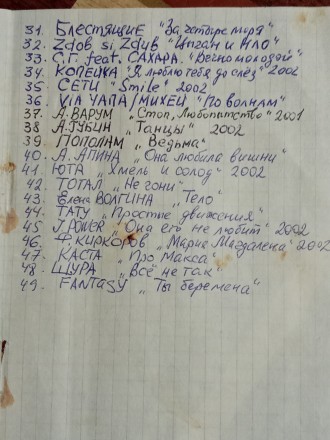 31. Блестящие "За четыре моря"
32. Zdob si Zdub "Цыган и НЛО"
33. С.Г. feat. САХАРА. "Вечно молодой"
34. КОПЕЙКА "Я люблю тебя до слёз" 2002
35. СЕТИ "Smile" 2002
36. VIA ЧАПА/МИХЕЙ "По волнам"
37. А.ВАРУМ "Стоп, Любопытство" 2001
38 А.ГУБИН "Танцы" 2002
39 ПОПОЛАМ "Ведьма"
40. А. АПИНА "Она любила вишни"
41. ЮТА "Хмель и солод" 2002
42. ТОТАЛ "Не гони"
43. Елена ВОЛГИНА "Тело"
44. ТАТУ "Простые движения"
45 J.POWER "Она его не любит" 2002
46. Ф.КИРКОРОВ "Мария Магдалена" 2002
47. КАСТА "Про Макса"
48. ШУРА "Всё не так"
49. FANTASY "Ты беремена"